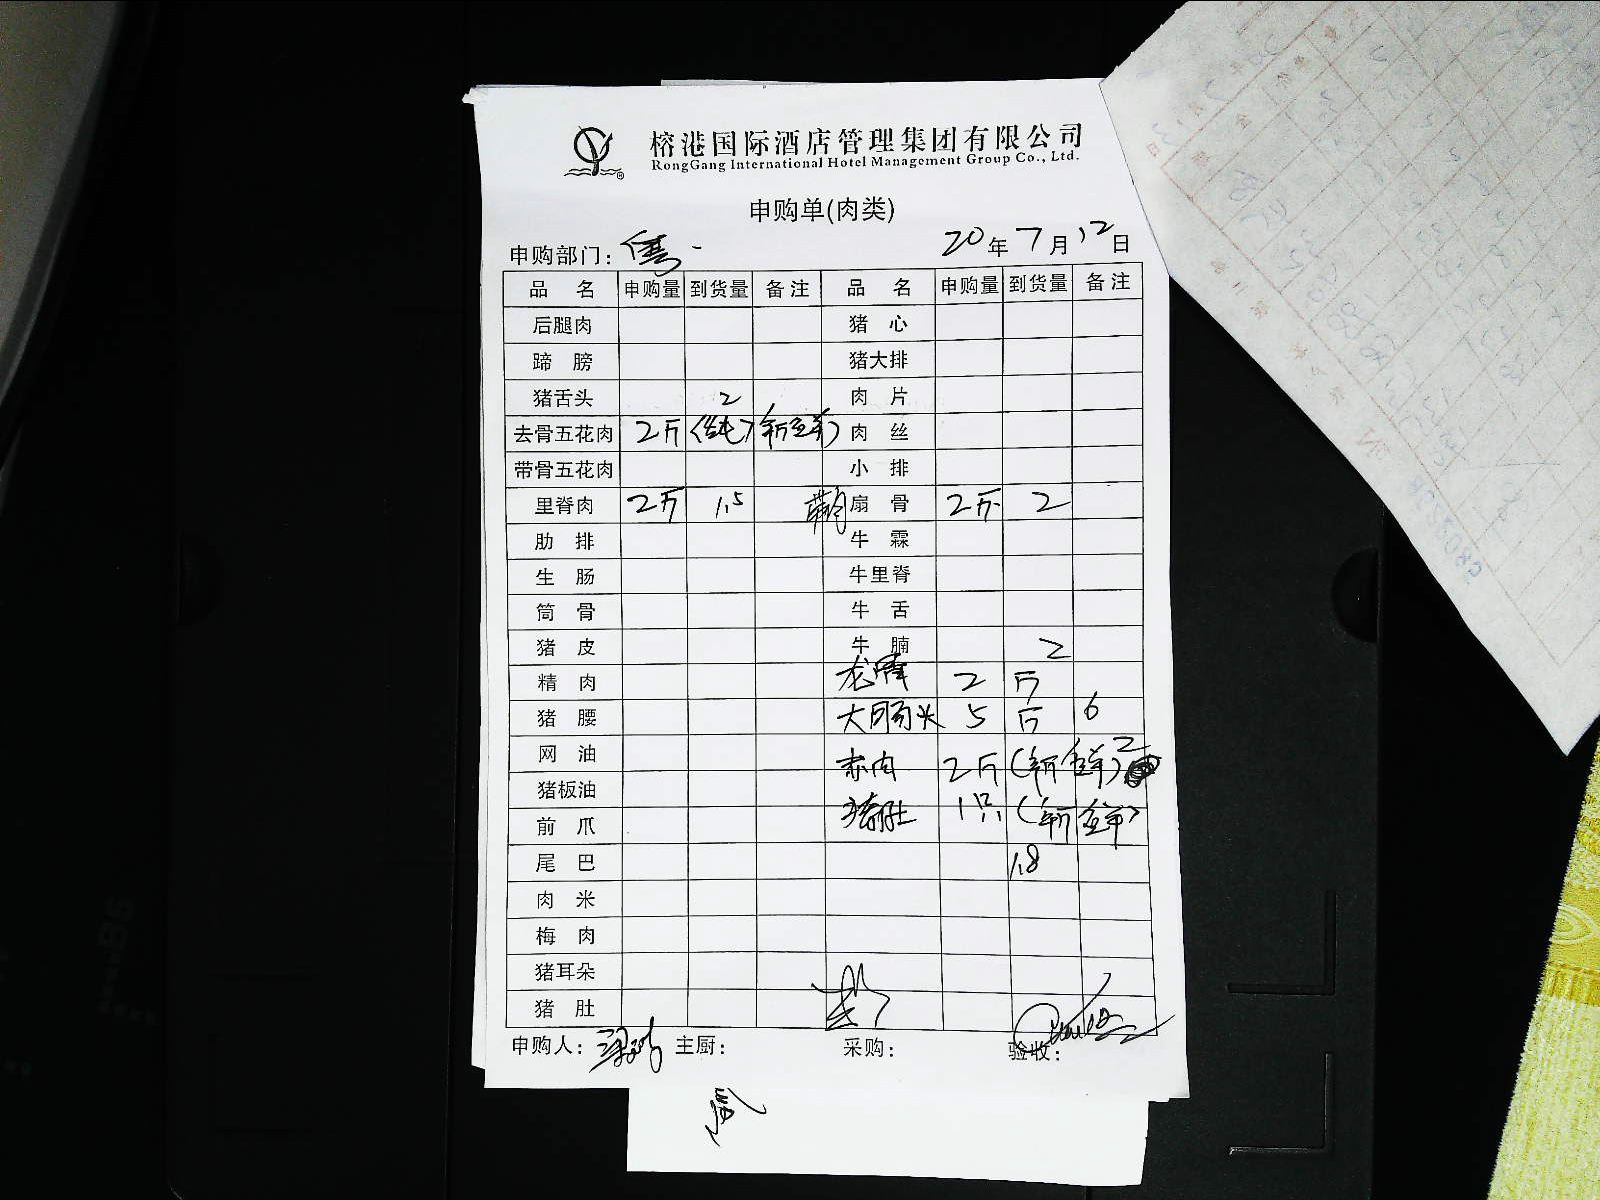 榕港国际酒店管理集团有限公司
RongGang International Hotel Management Group Co., Ltd.
申购单(肉类)
申购部门： 20年7月12日
品 名 申购量 到货量 备注 品 名 申购量 到货量 备注
后腿肉 猪 心
蹄 膀 猪大排
猪舌头 2 肉 片
去骨五花肉 2斤 (纯) 新鲜) 肉 丝
带骨五花肉 小 排
里脊肉 2斤 1.5 扇 骨 2斤 2
肋 排 牛 霖
生 肠 牛里脊
筒 骨 牛 舌
猪 皮 牛 腩 2
精 肉 龙骨 2 斤
猪 腰 大肠头 5 斤 6
网 油 赤肉 2斤 (新鲜) 2
猪板油
前 爪 猪肚 1只 (新鲜)
尾 巴 1.8
肉 米
梅 肉
猪耳朵
猪 肚
申购人： 主厨： 采购： 验收：